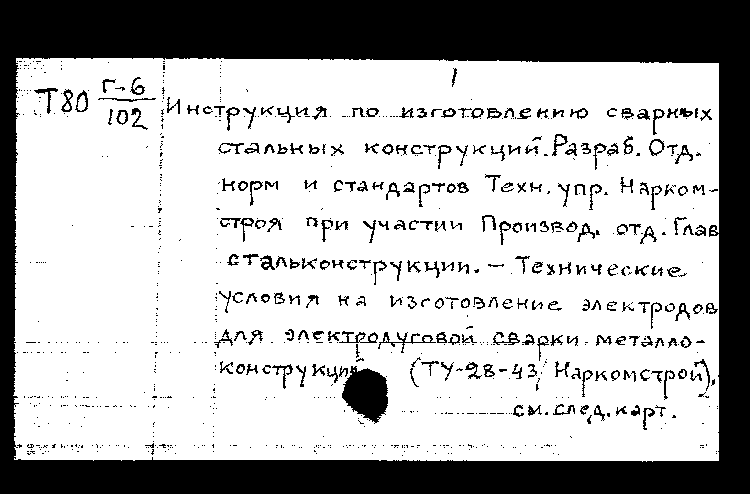 1
Т80 Г-6/102 Инструкция по изготовлению сварных
стальных конструкций. Разраб. Отд.
норм и стандартов Техн. упр. Нарком-
строя при участии Производ. отд. Глав
стальконструкции. – Технические
условия на изготовление электродов
для электродуговой сварки металло-
конструкций (ТУ-28-43, Наркомстрой).
см. след. карт.